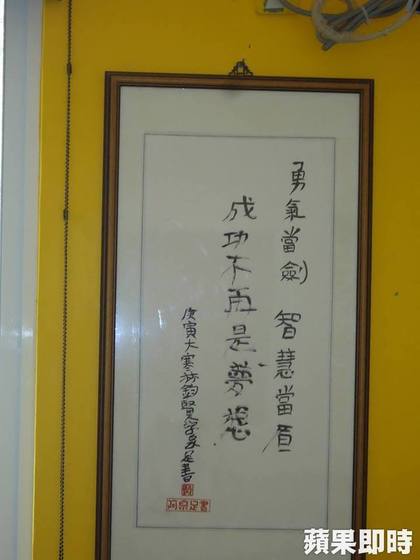 勇氣當劍 智慧當盾
成功不再是夢想
庚寅大寒於鈞賢足書
阿泉足書
蘋果即時